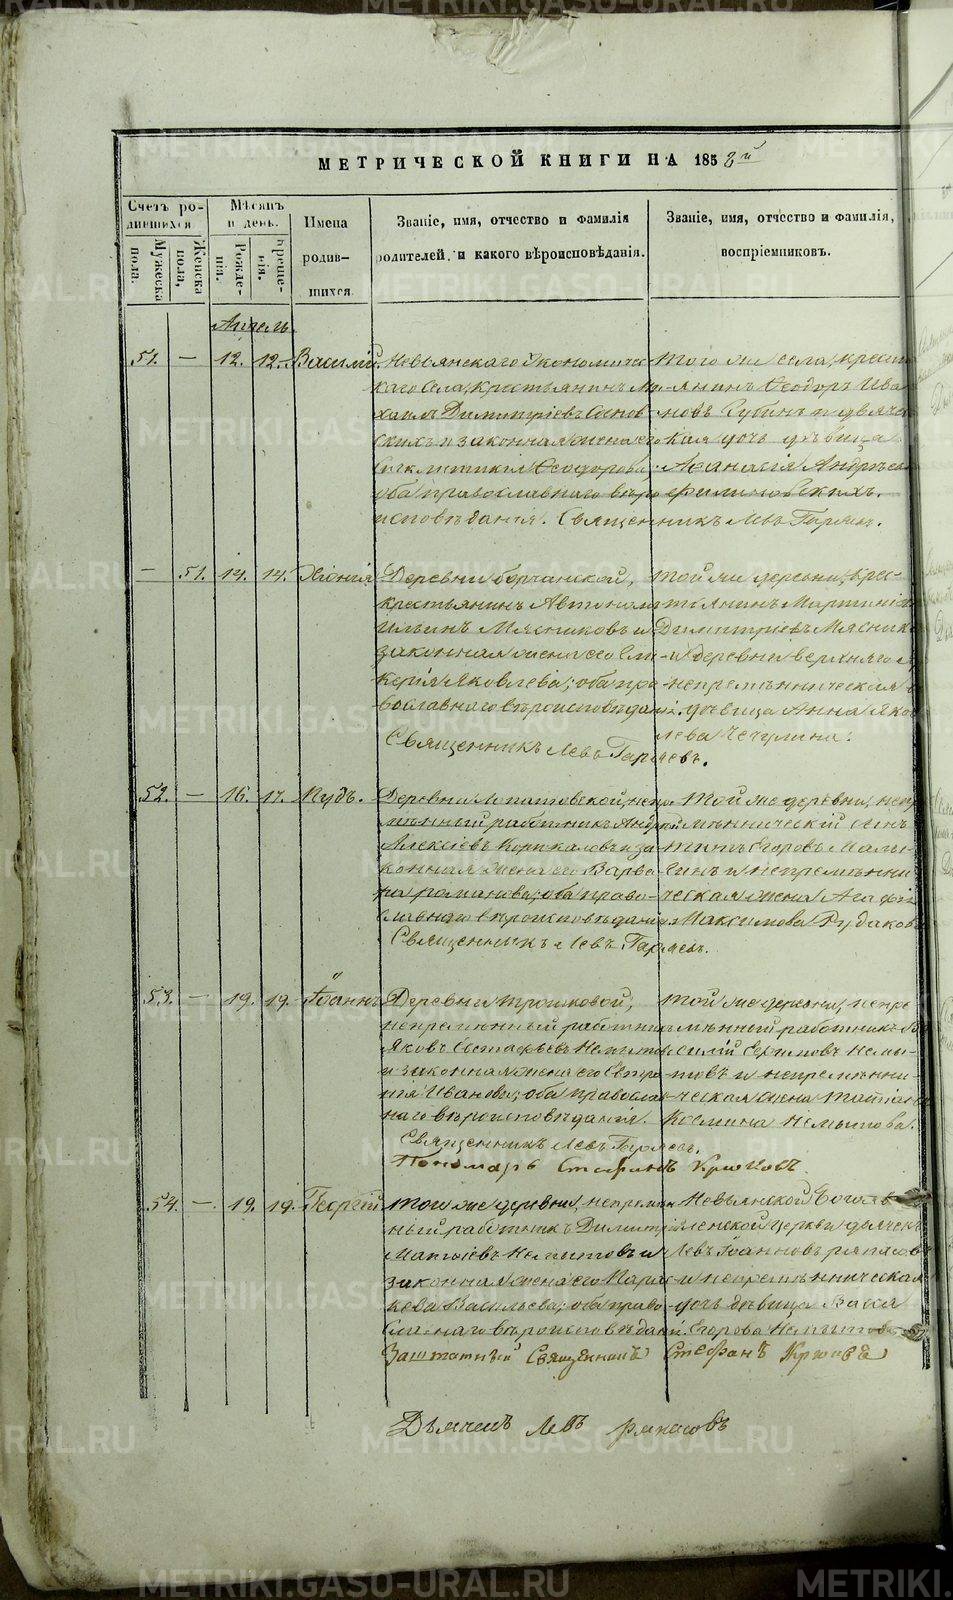 МЕТРИЧЕСКОЙ КНИГИ НА 1858й
Счетъ родившихся.
Мужеска пола.
Женска пола,
Мѣсяцъ и день.
Рожденія.
Крещенія.
Имена родившихся.
Званіе, имя, отчество и фамилія
родителей, и какого вѣроисповѣданія.
Званіе, имя, отчество и фамилія,
воспріемниковъ.
Апрель.
51. — 12. 12. Василій.
Невьянскаго Экономичес
каго Села, Крестьянинъ Ми
хаилъ Димитріевъ Соснов
скихъ и законная жена его
Ѳеодорова;
оба православнаго вѣро
исповѣданія. Священникъ Левъ Гаряевъ.
того же села, крест
янинъ Ѳеодоръ Ива
новъ Губинъ и
кая дочь дѣвица
Аѳанасія Андрѣева
— 51. 14. 14. Хіонія
Деревни
крестьянинъ Автономъ
Ильинъ Мясниковъ и
законная жена его Гли
керія Яковлева; оба пра
вославнаго вѣроисповѣданія.
Священникъ Левъ Гаряевъ.
той же деревни, крес-
тьянинъ Мартиніанъ
Димитріевъ Мясник
и деревни верхняго
непремѣнническая
дѣвица Анна Яков
лева Чечулина.
52. — 16. 17. Пудъ.
Деревни Лопатовской, непре
мѣнный работникъ Андрей
Алексіевъ и за
конная жена его Варва
ра романова; оба право
славнаго вѣроисповѣданія
Священникъ Левъ Гаряевъ.
той же деревни, непре
мѣнническій сынъ
Егоровъ Малы
гинъ и непремѣнни
ческая жена Агафія
Максимова Рудакова
53. — 19. 19. Іоаннъ
Деревни трошковой,
непремѣнный работникъ
Яковъ Евстафьевъ Немытов
и законная жена его
Иванова; оба православ
наго вѣроисповѣданія.
Священникъ Левъ Гаряевъ.
Пономарь Стефанъ Крюковъ.
той же деревни, непре
мѣнный работникъ Ва
силій Ефимовъ Немы-
товъ и непремѣнни
ческая жена Татіана
Козмина Немытова.
54. — 19. 19. Георгій
той же деревни, непремѣн
ный работникъ Димитрій
Матвіевъ Немытовъ и
законная жена его Парас
кева Васильева; оба право
славнаго вѣроисповѣданія.
Невьянской Богояв
ленской Церкви дьячекъ
Левъ Іоанновъ ряпасовъ
и непремѣнническая
дочь дѣвица Васса
Егорова Немытова
Заштатный Священникъ Стефанъ Крюковъ
Дьячекъ Левъ ряпасовъ
METRIKI.GASO-URAL.RU